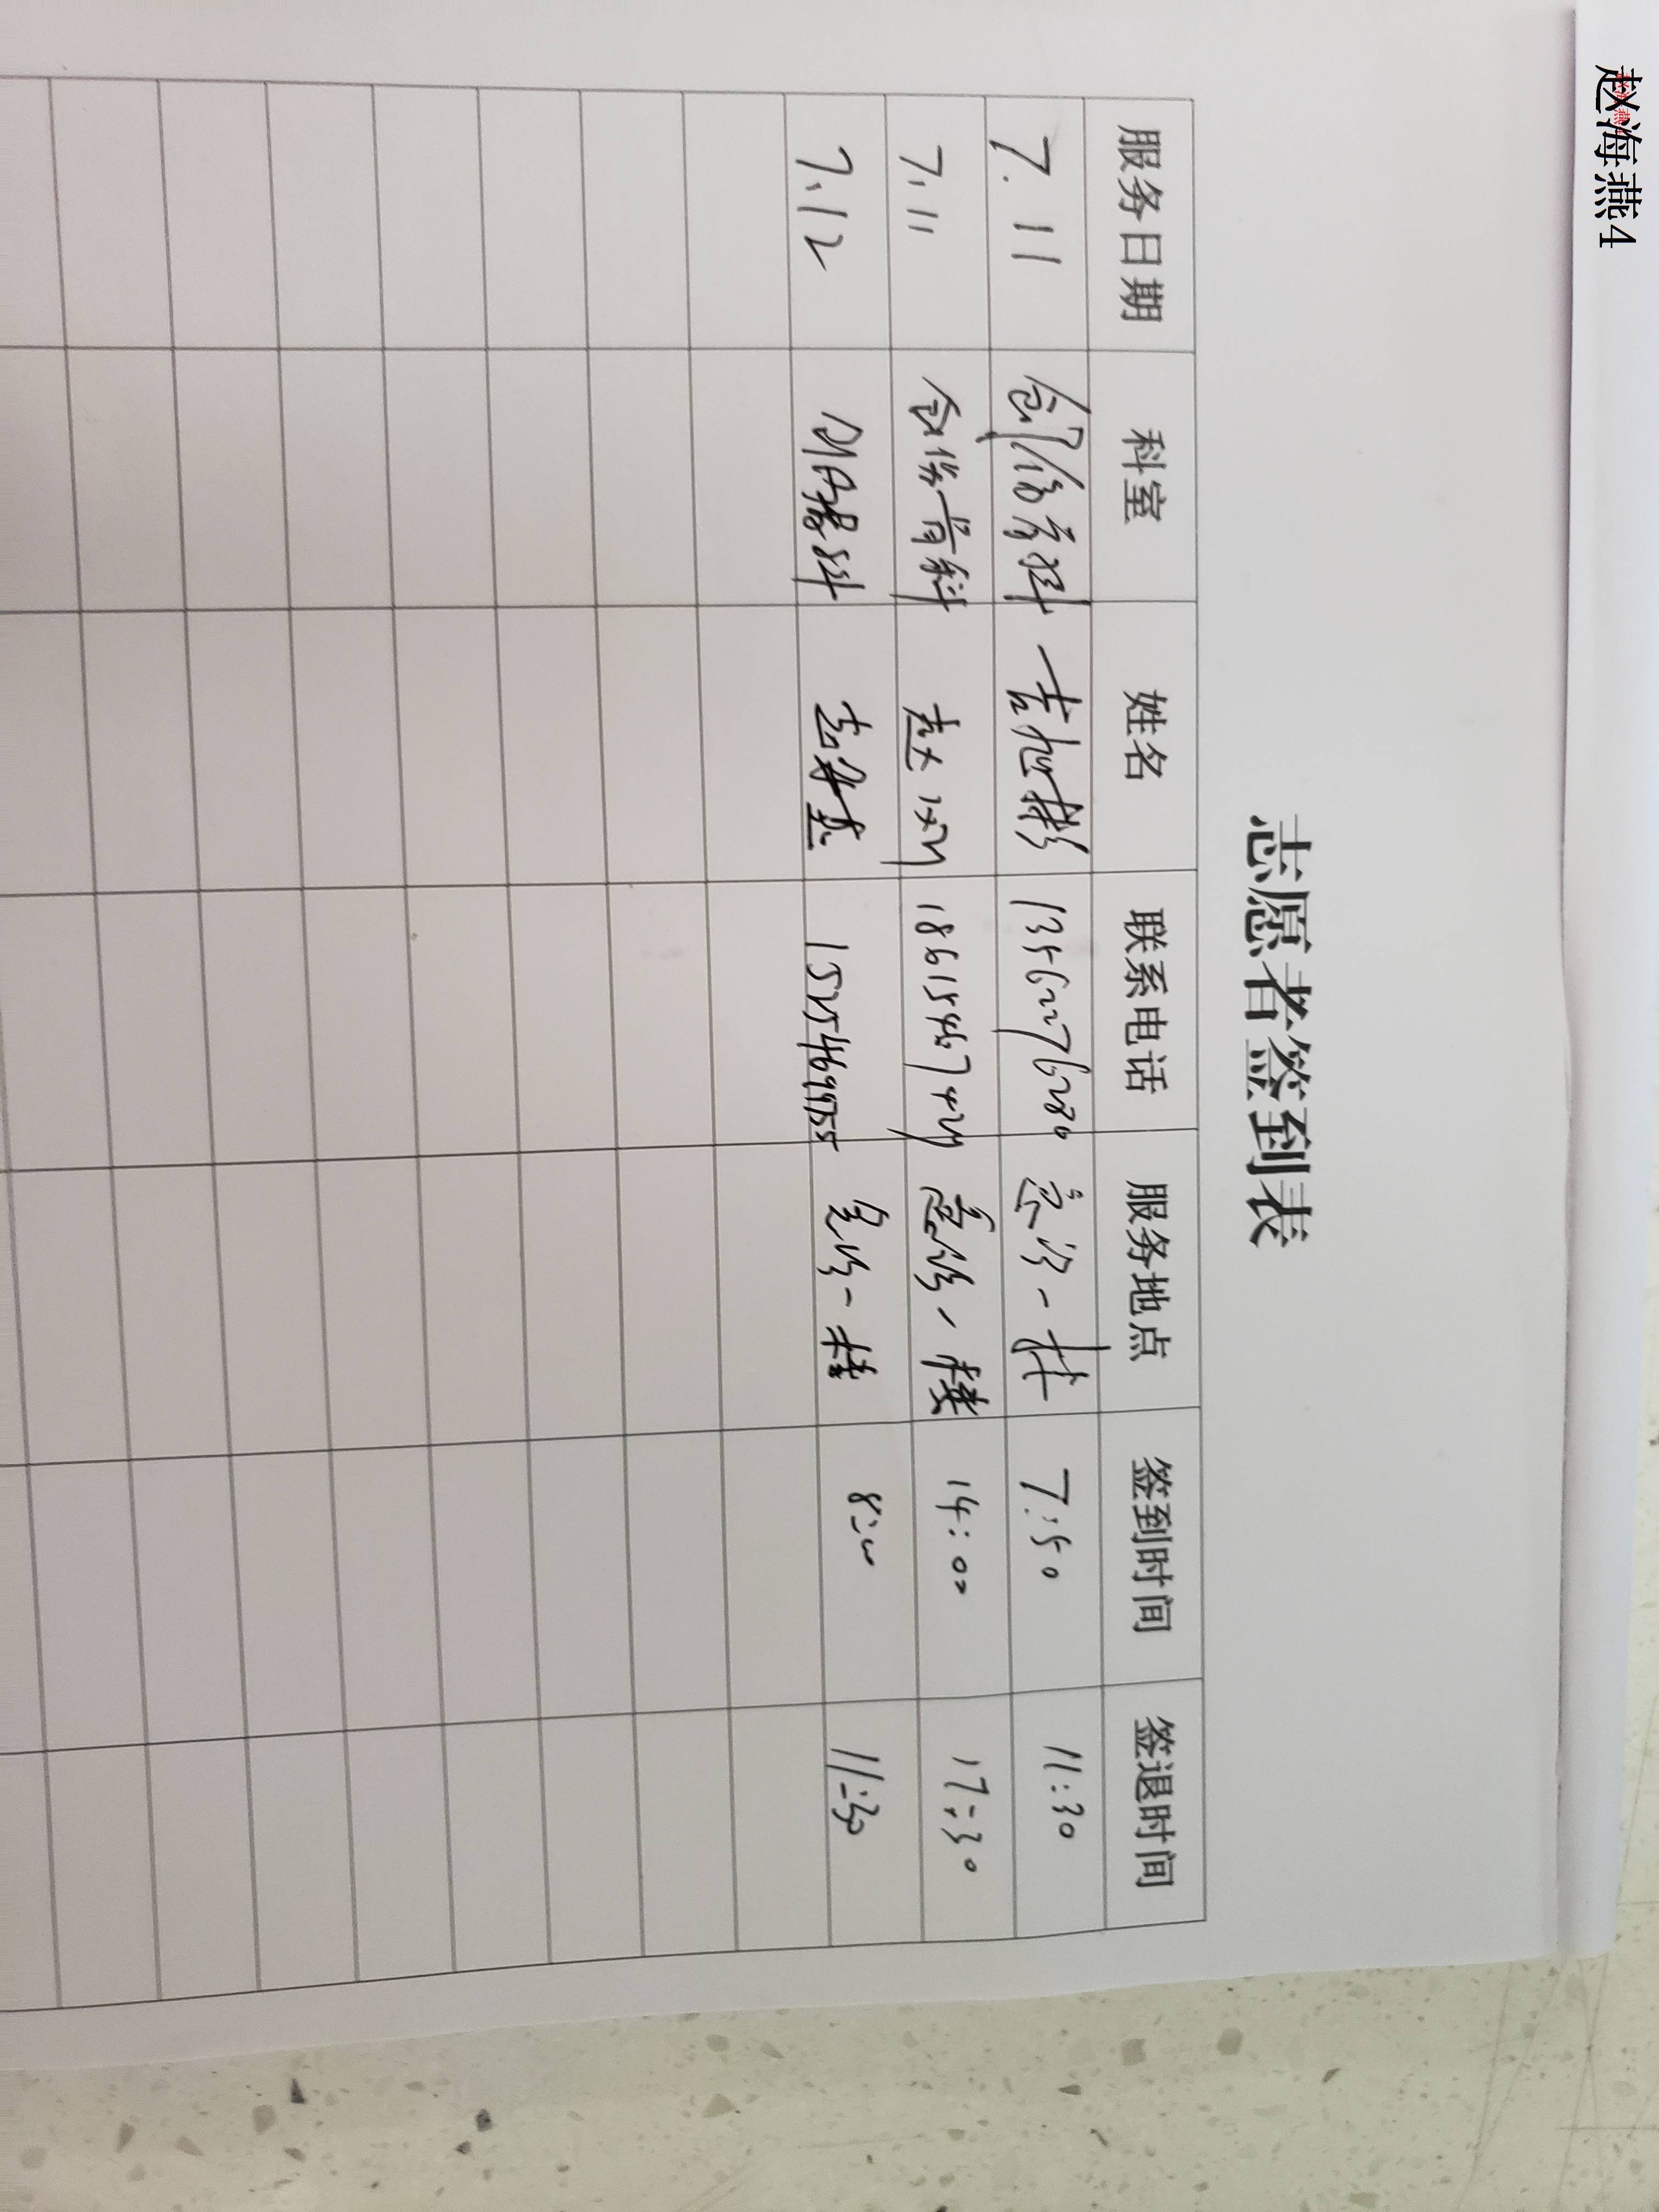 赵海燕4
志愿者签到表
服务日期 科室 姓名 联系电话 服务地点 签到时间 签退时间
7.11 创伤骨科 13562276280 急诊一楼 7:50 11:30
7.11 创伤骨科 赵 急诊一楼 14:00 17:30
7.12 急诊一楼 8:00 11:30